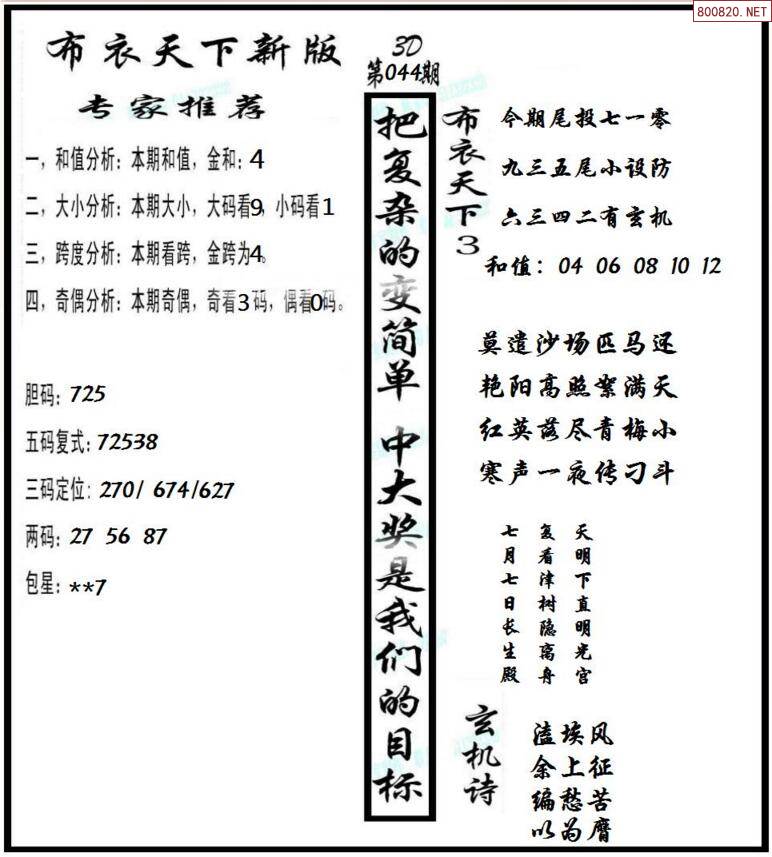 800820.NET
布衣天下新版
专家推荐
一，和值分析：本期和值，金和：4
二，大小分析：本期大小，大码看9，小码看1
三，跨度分析：本期看跨，金跨为4。
四，奇偶分析：本期奇偶，奇看3码，偶看0码。
胆码：725
五码复式：72538
三码定位：270/ 674/627
两码：27 56 87
包星：**7
3D
第044期
把复杂的变简单 中大奖是我们的目标
布衣天下3
今期尾投七一零
九三五尾小设防
六三四二有玄机
和值：04 06 08 10 12
莫遣沙场匹马还
艳阳高照絮满天
红英落尽青梅小
寒声一夜传刁斗
天明下直明光宫
复看津树隐离舟
七月七日长生殿
玄机诗
溘埃风
余上征
编愁苦
以为膺